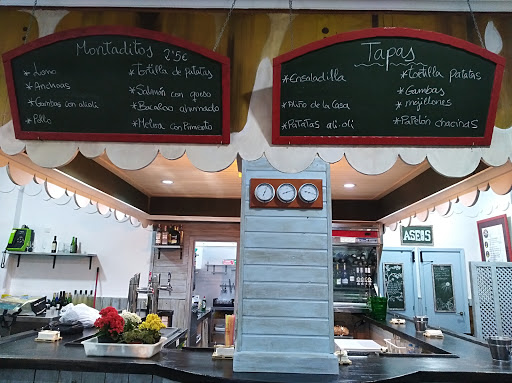 Montaditos 2'5€
*Lomo
*Anchoas
*Gambas con alioli
*Pollo
*Tortilla de patatas
*Salmón con queso
*Bacalao ahumado
*Melva con Pimiento
Tapas
*Ensaladilla
*Plato de la Casa
*Patatas ali-oli
*Tortilla patatas
*Gambas
*mejillones
*Papelón chacinas
ASEOS